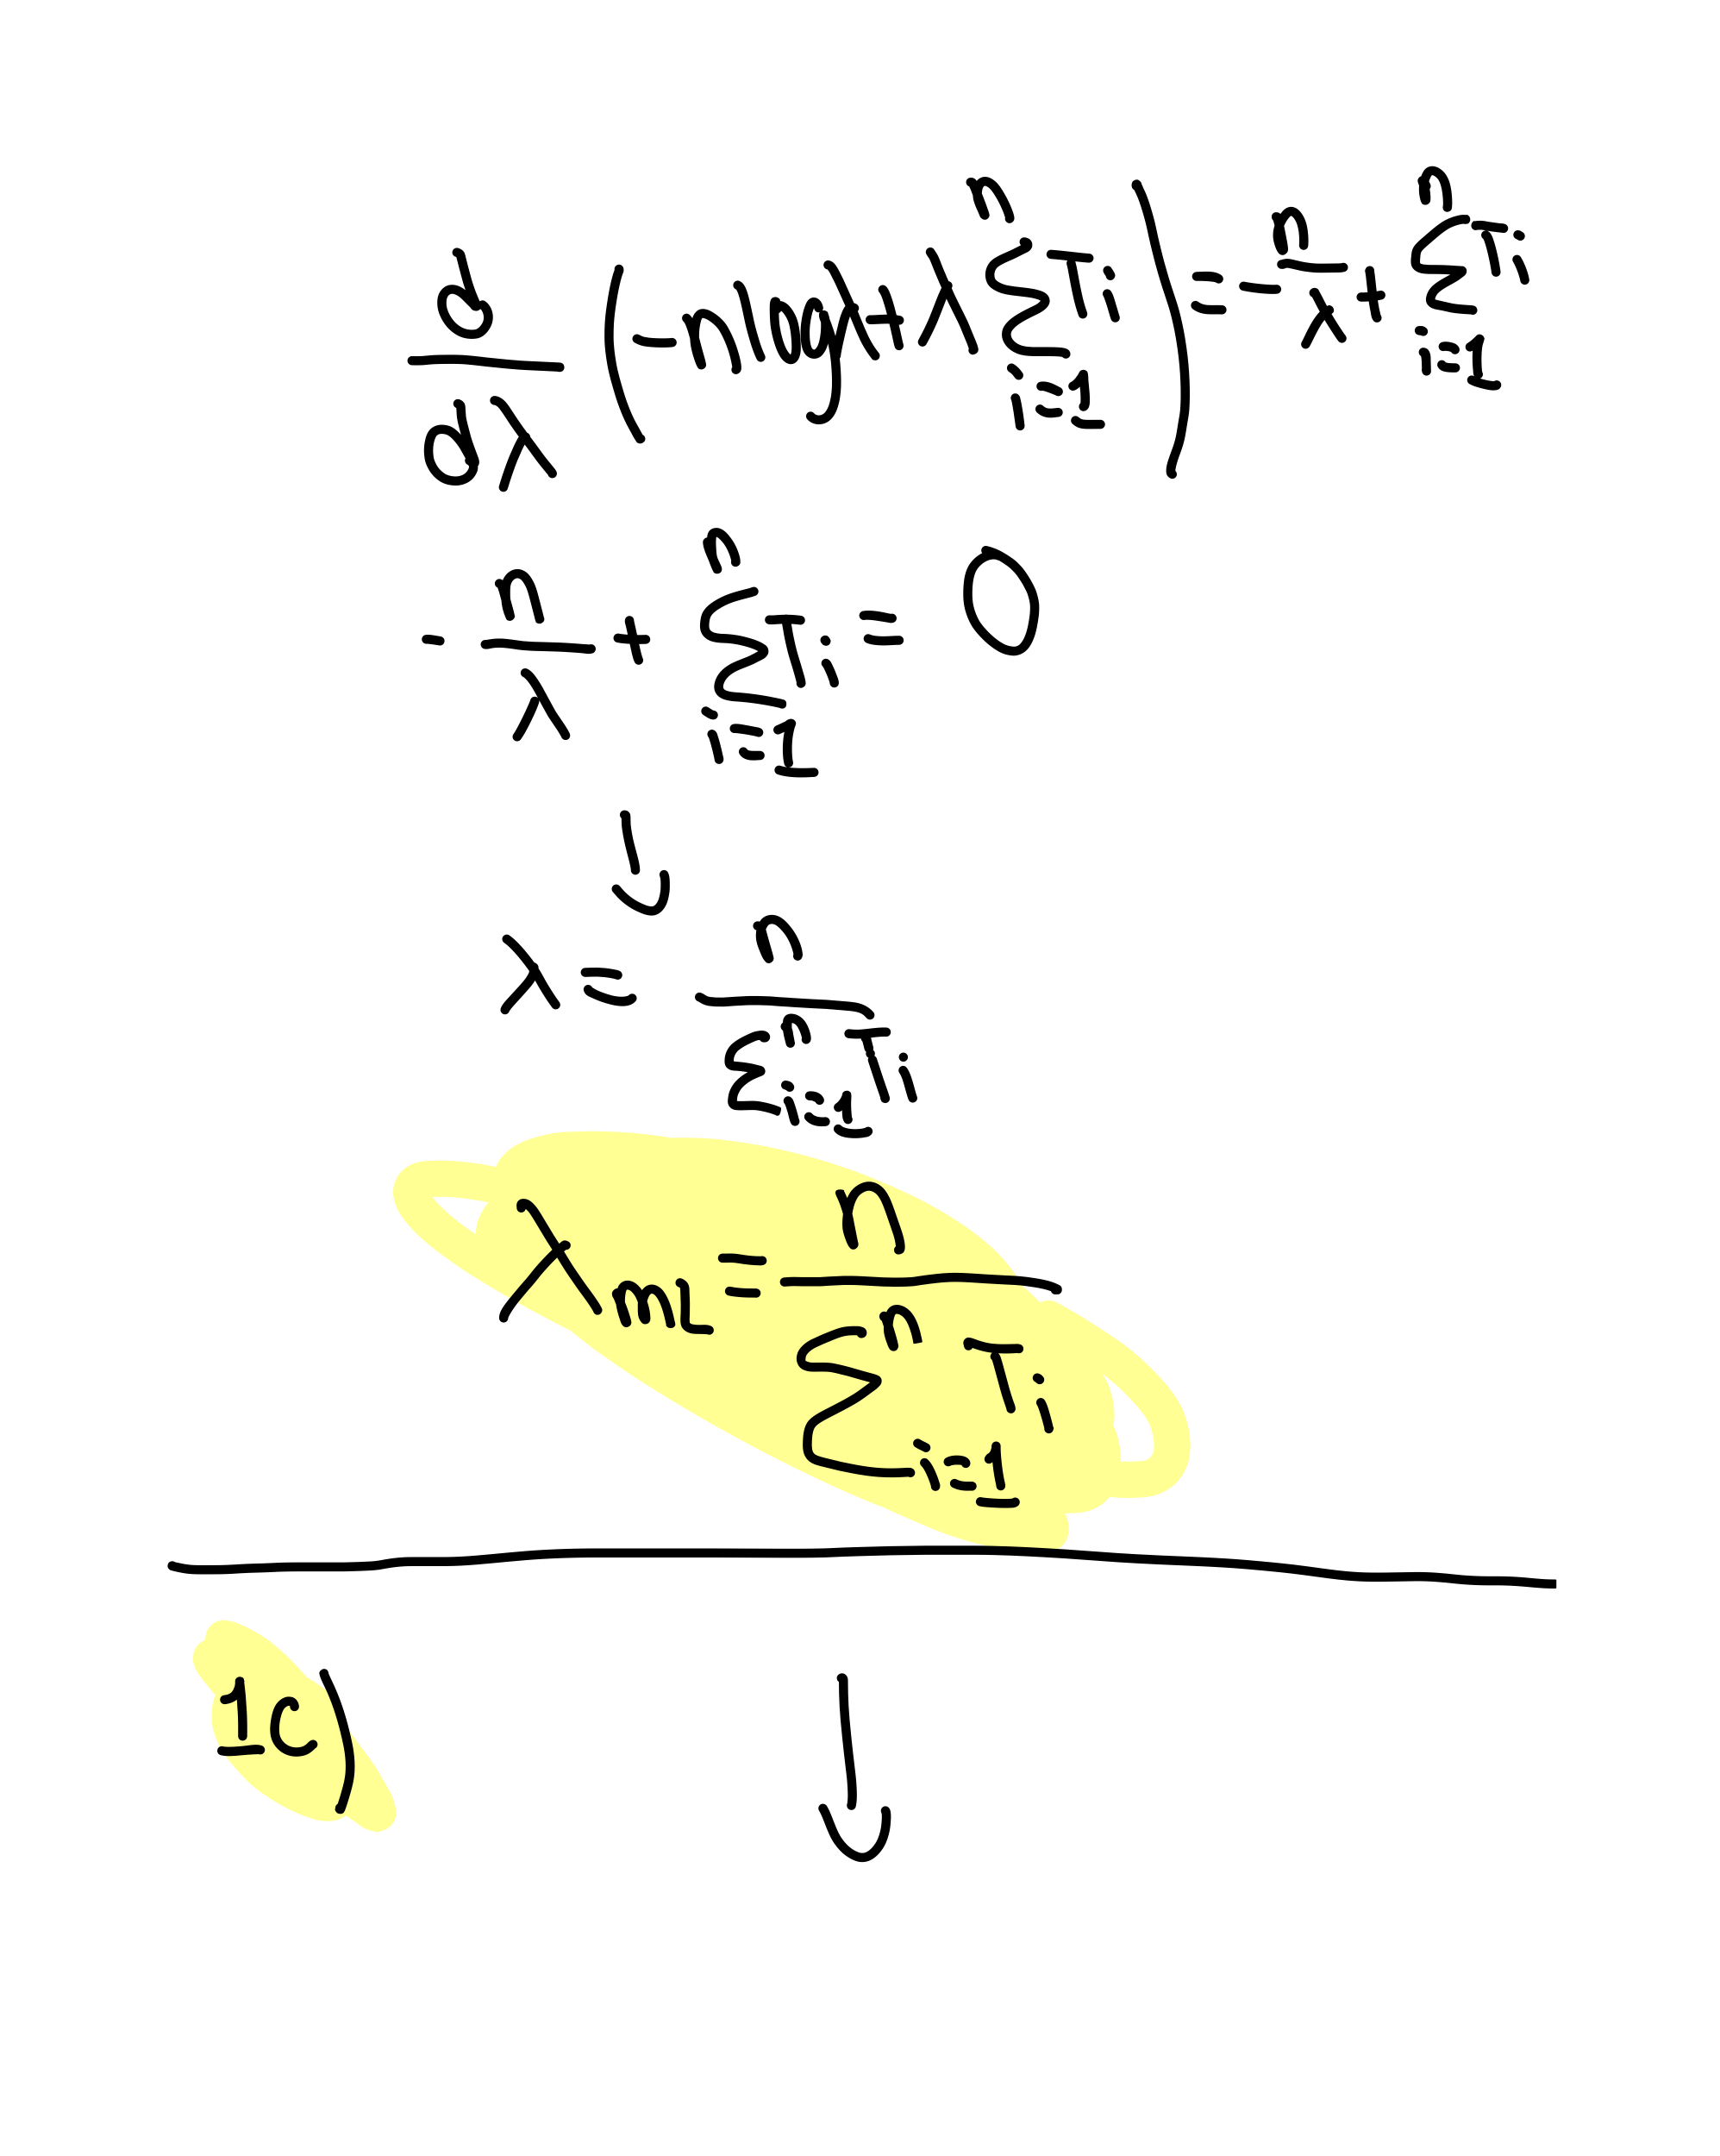 d/dλ (-n log λ + λ Σ_{i=1}^{n} T_i) = -n/λ + Σ_{i=1}^{n} T_i
- n/λ + Σ_{i=1}^{n} T_i = 0
↓
λ = n / Σ_{i=1}^{n} T_i
λ_{ML} = n / Σ_{i=1}^{n} T_i
1C)
↓